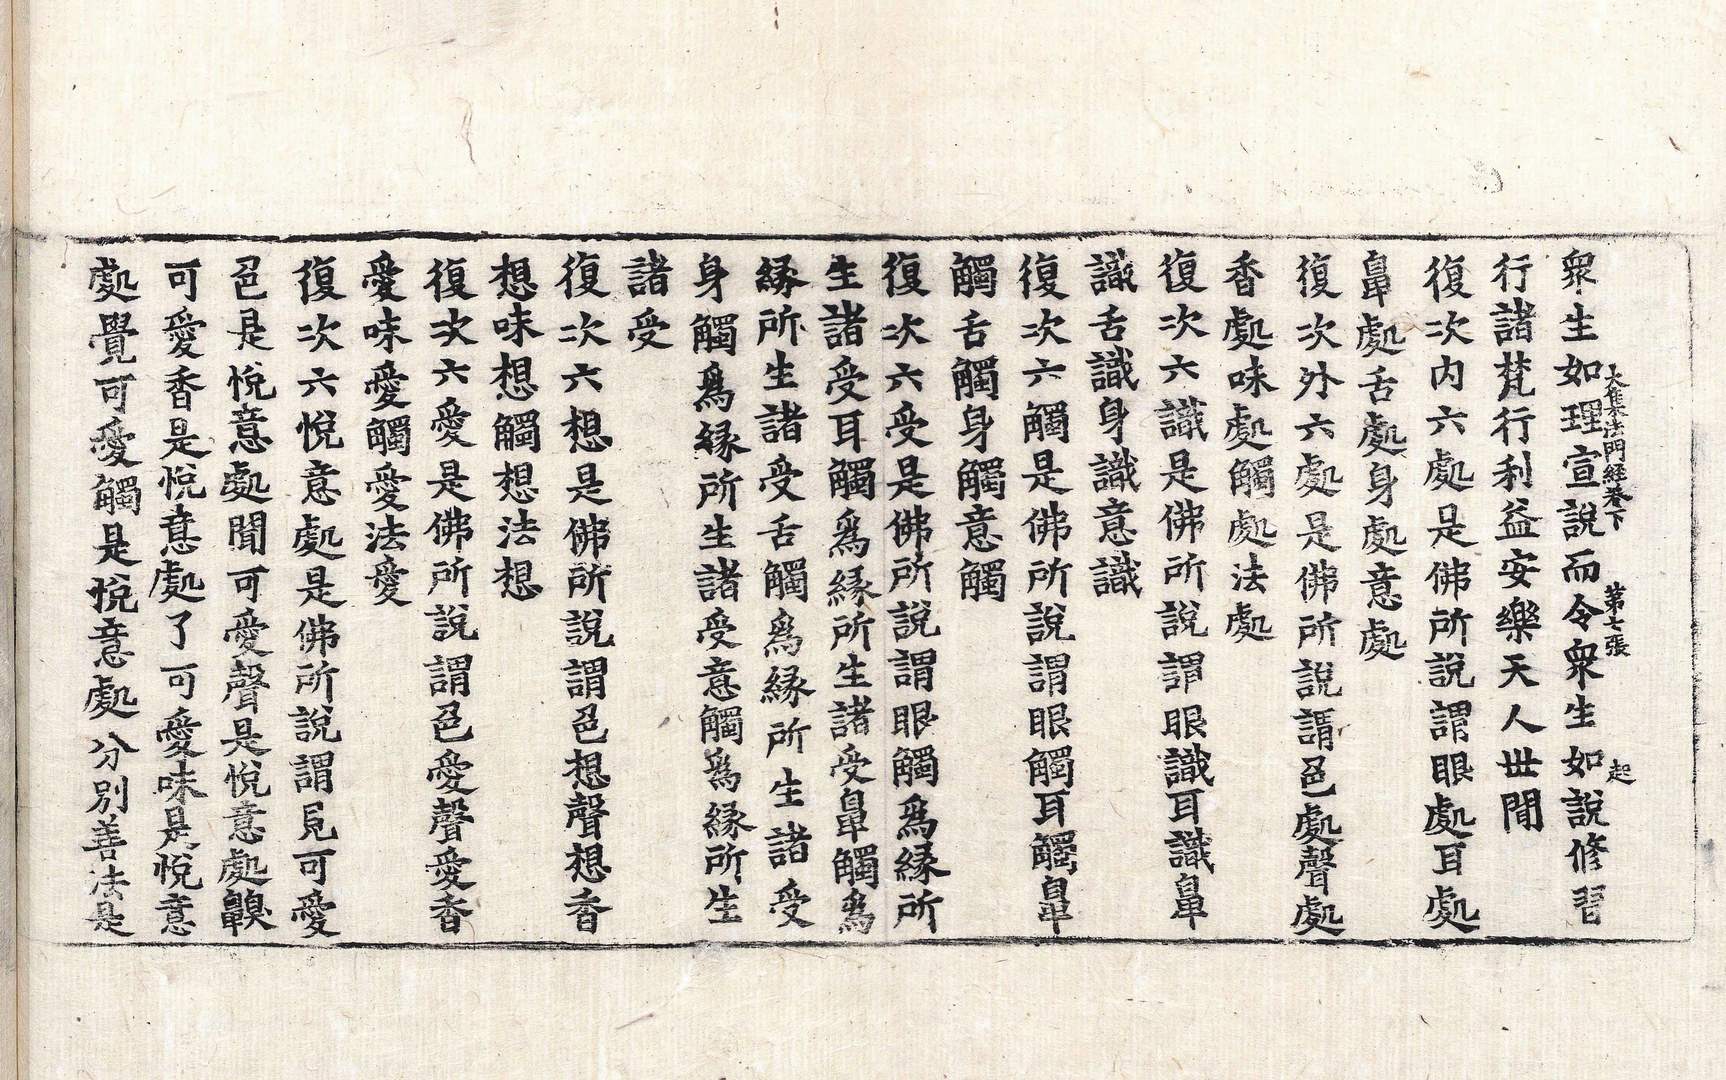 大集法門經卷下　第七張　起
衆生如理宣說而令衆生如說修習
行諸梵行利益安樂天人世間
復次内六處是佛所說謂眼處耳處
鼻處舌處身處意處
復次外六處是佛所說謂色處聲處
香處味處觸處法處
復次六識是佛所說謂眼識耳識鼻
識舌識身識意識
復次六觸是佛所說謂眼觸耳觸鼻
觸舌觸身觸意觸
復次六受是佛所說謂眼觸爲緣所
生諸受耳觸爲緣所生諸受鼻觸爲
緣所生諸受舌觸爲緣所生諸受
身觸爲緣所生諸受意觸爲緣所生
諸受
復次六想是佛所說謂色想聲想香
想味想觸想法想
復次六愛是佛所說謂色愛聲愛香
愛味愛觸愛法愛
復次六悅意處是佛所說謂見可愛
色是悅意處聞可愛聲是悅意處齅
可愛香是悅意處了可愛味是悅意
處覺可愛觸是悅意處分別善法是